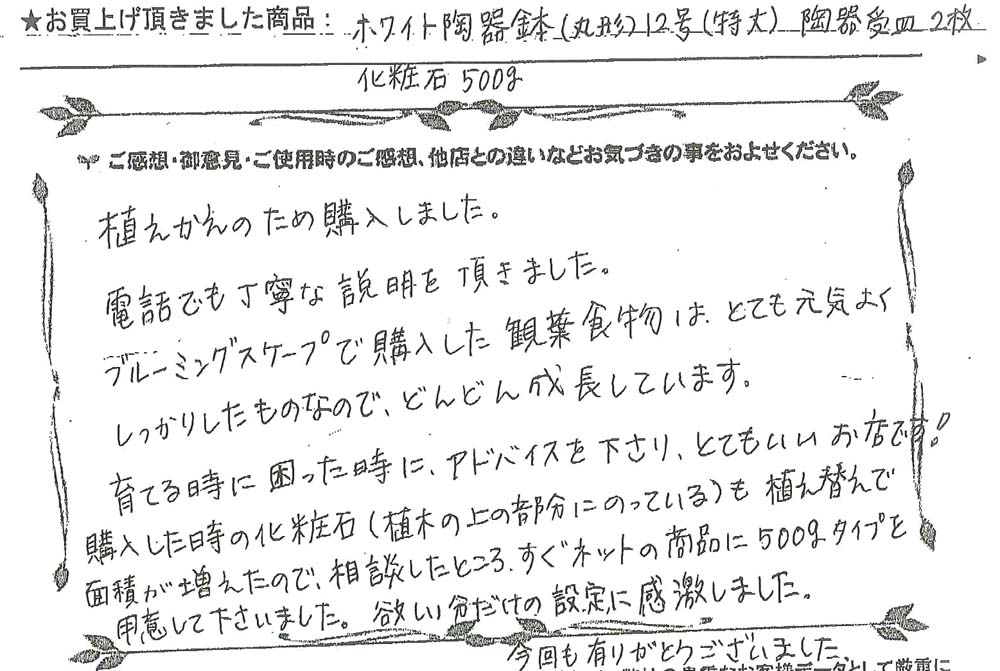 ★お買上げ頂きました商品： ホワイト陶器鉢(丸形)12号(特大) 陶器受皿2枚
化粧石 500g
ご感想・御意見・ご使用時のご感想、他店との違いなどお気づきの事をおよせください。
植えかえのため購入しました。
電話でも丁寧な説明を頂きました。
ブルーミングスケープで購入した観葉食物は、とても元気よく
しっかりしたものなので、どんどん成長しています。
育てる時に困った時に、アドバイスを下さり、とてもいいお店です!
購入した時の化粧石(植木の上の部分にのっている)も植え替えで
面積が増えたので、相談したところ、すぐネットの商品に500gタイプを
用意して下さいました。欲しい分だけの設定に感激しました。
今回も有りがとうございました。